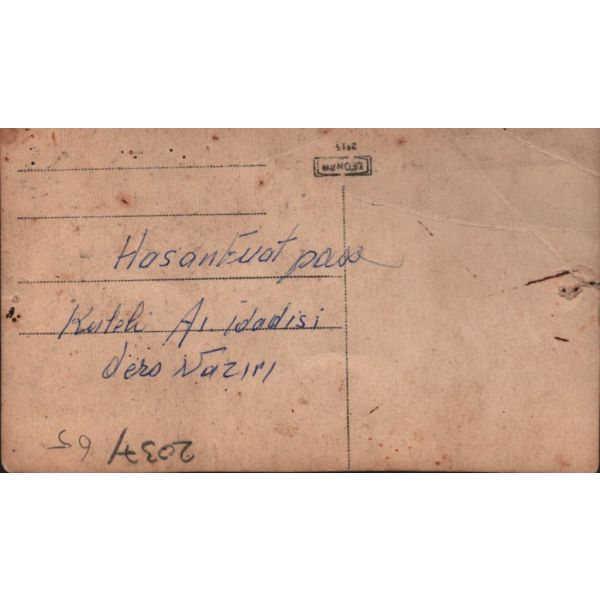 LEONAR
2915
Hasan Fuat pasa
Kuleli As. idadisi
ders Nazırı
2037 65